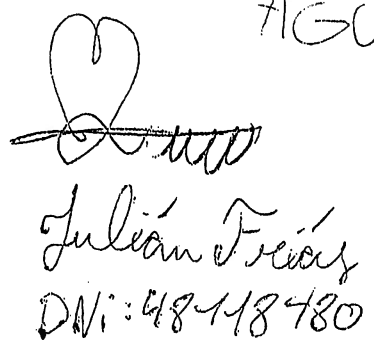 AGU
Julián Frías
DNi: 48118480